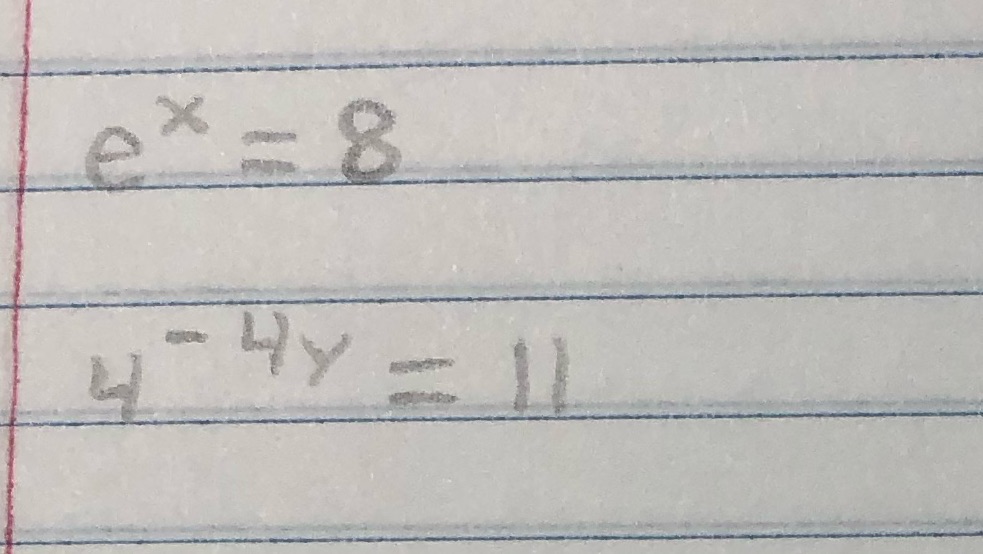 e^x = 8
4^-4y = 11